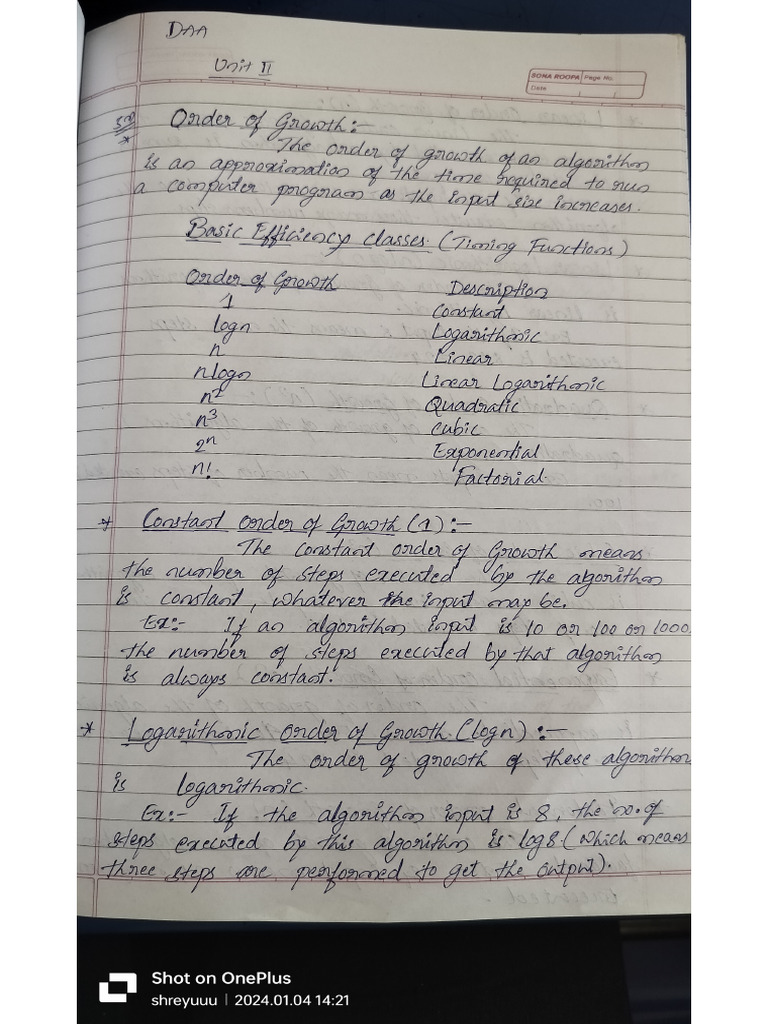 DAA
Unit II
SONA ROOPA Page No.
Date
5m
* Order of Growth:-
The order of growth of an algorithm
is an approximation of the time required to run
a computer program as the input size increases.
Basic Efficiency classes. (Timing Functions)
Order of Growth Description
1 Constant
logn Logarithmic
n Linear
nlogn Linear Logarithmic
n² Quadratic
n³ Cubic
2ⁿ Exponential
n! Factorial.
* Constant order of Growth (1) :-
The constant order of Growth means
the number of steps executed by the algorithm
is constant, whatever the input may be.
Ex:- If an algorithm input is 10 or 100 or 1000.
the number of steps executed by that algorithm
is always constant.
* Logarithmic order of Growth. (logn) :-
The order of growth of these algorithm
is logarithmic.
Ex:- If the algorithm input is 8, the no. of
steps executed by this algorithm is log8 (which means
three steps are performed to get the output).
Shot on OnePlus
shreyuuu | 2024.01.04 14:21